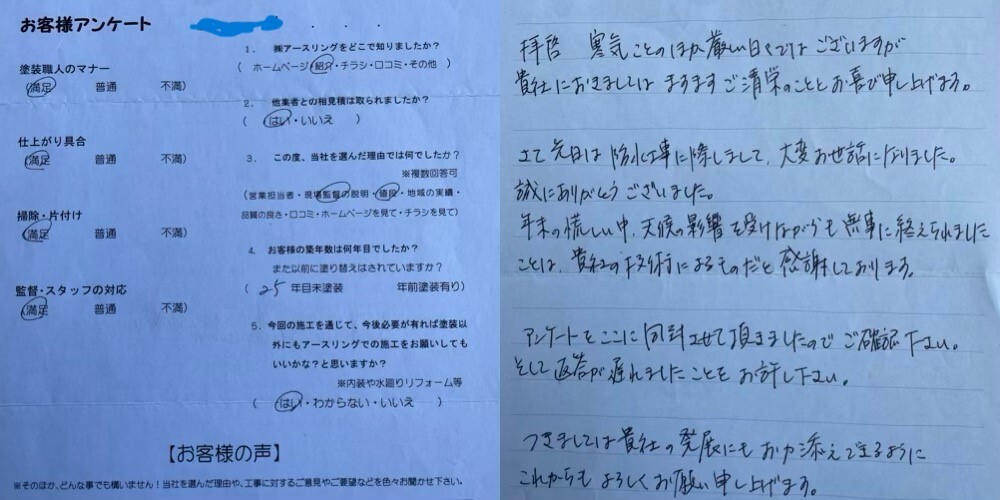 お客様アンケート
塗装職人のマナー
(満足 普通 不満)
仕上がり具合
(満足 普通 不満)
掃除・片付け
(満足 普通 不満)
監督・スタッフの対応
(満足 普通 不満)
1. ㈱アースリングをどこで知りましたか?
( ホームページ・紹介・チラシ・口コミ・その他 )
2. 他業者との相見積は取られましたか?
( はい・いいえ )
3. この度、当社を選んだ理由では何でしたか?
※複数回答可
(営業担当者・現場監督の説明・値段・地域の実績・
品質の良さ・口コミ・ホームページを見て・チラシを見て)
4. お客様の築年数は何年目でしたか?
また以前に塗り替えはされていますか?
( 25 年目未塗装 年前塗装有り)
5. 今回の施工を通じて、今後必要が有れば塗装以
外にもアースリングでの施工をお願いしても
いいかな?と思いますか?
※内装や水廻りリフォーム等
( はい・わからない・いいえ )
【お客様の声】
※そのほか、どんな事でも構いません!当社を選んだ理由や、工事に対するご意見やご要望などを色々お聞かせ下さい。
拝啓 寒気ことのほか厳しい日々ではございますが
貴社におきましては ますます ご清栄のこととお喜び申し上げます。
さて 先日は 防水工事に際しまして、大変お世話になりました。
誠にありがとうございました。
年末の慌しい中、天候の影響を受けながらも 無事に終えられました
ことは、貴社の技術によるものだと 感謝しております。
アンケートをここに同封させて頂きましたので ご確認下さい。
そして 返答が遅れましたことを お許し下さい。
つきましては 貴社の発展にも お力添えできるように
これからも よろしくお願い申し上げます。